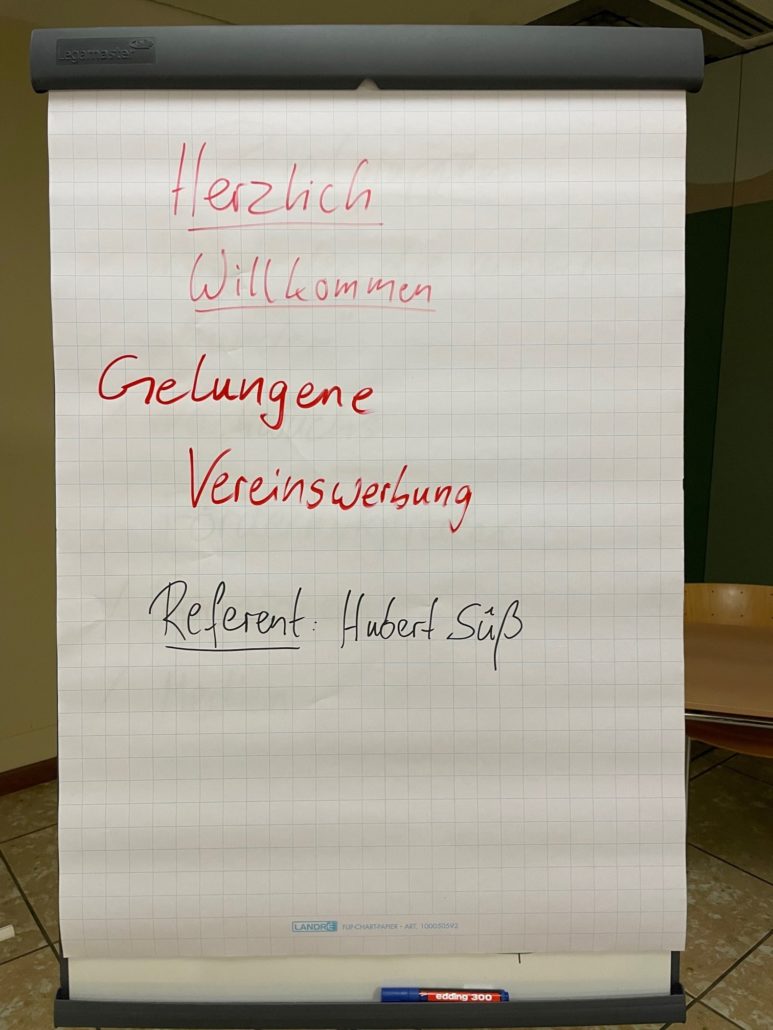 Legamaster
Herzlich
Willkommen
Gelungene
Vereinswerbung
Referent: Hubert Süß
LANDRÉ FLIP-CHART-PAPIER • ART. 100050592
edding 300